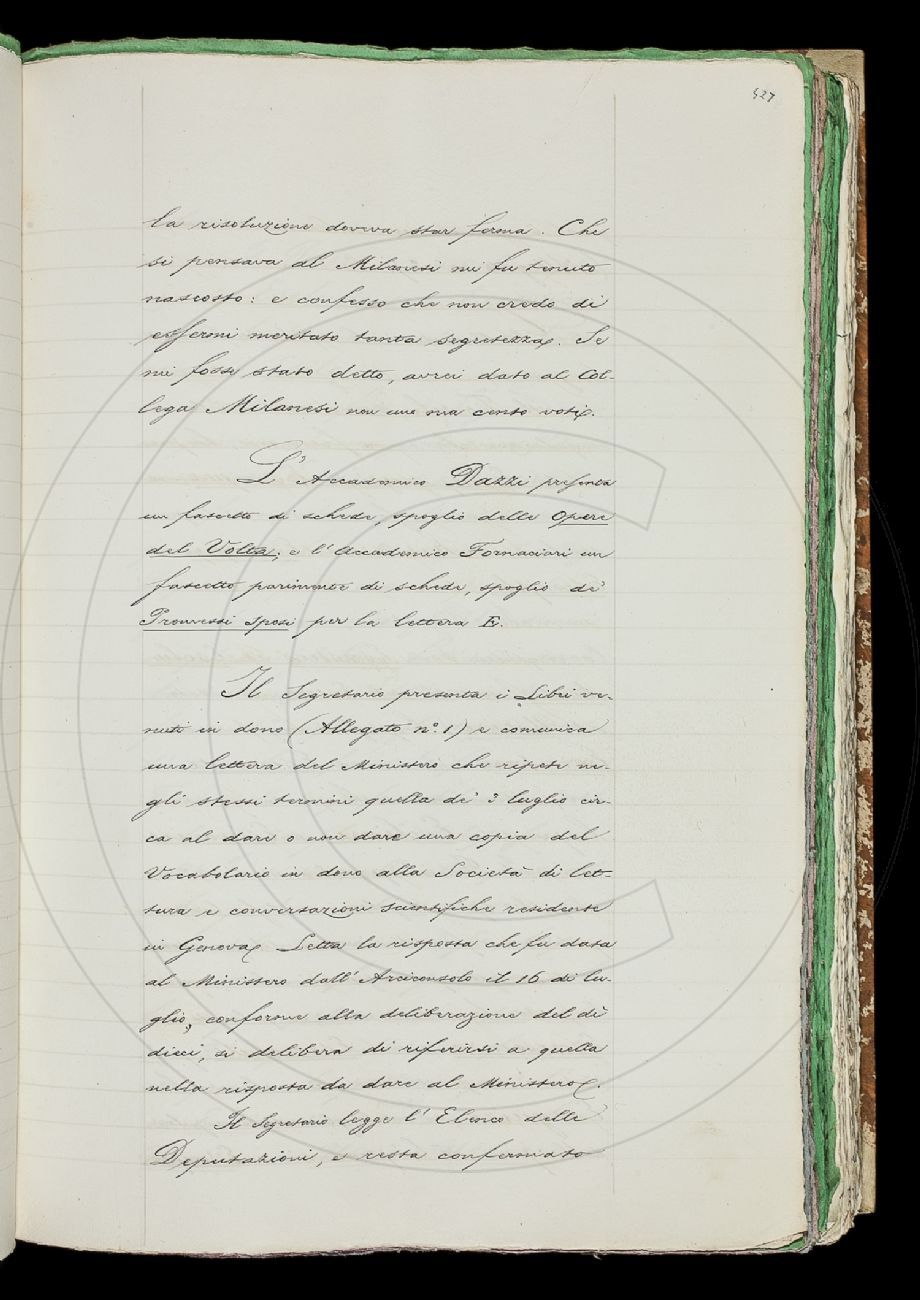 427
la risoluzione doveva star ferma. Che
si pensava al Milanesi mi fu tenuto
nascosto: e confesso che non credo di
essermi meritato tanta segretezza. Se
mi fosse stato detto, avrei dato al Col-
lega Milanesi non uno ma cento voti.
L'Accademico Dazzi presenta
un fascetto di schede, spoglio delle Opere
del Volta; e l'Accademico Fornaciari un
fascetto parimente di schede, spoglio de'
Promessi Sposi per la lettera E.
Il Segretario presenta i Libri ve-
nuti in dono (Allegato n.º 1) e comunica
una lettera del Ministero che ripete ne-
gli stessi termini quella de' 3 luglio cir-
ca al dare o non dare una copia del
Vocabolario in dono alla Società di let-
tura e conversazioni scientifiche residente
in Genova. Letta la risposta che fu data
al Ministero dall'Arciconsolo il 16 di lu-
glio, conforme alla deliberazione del dì
dieci, si delibera di riferirsi a quella
nella risposta da dare al Ministero.
Il Segretario legge l'Elenco delle
Deputazioni, e resta confermato